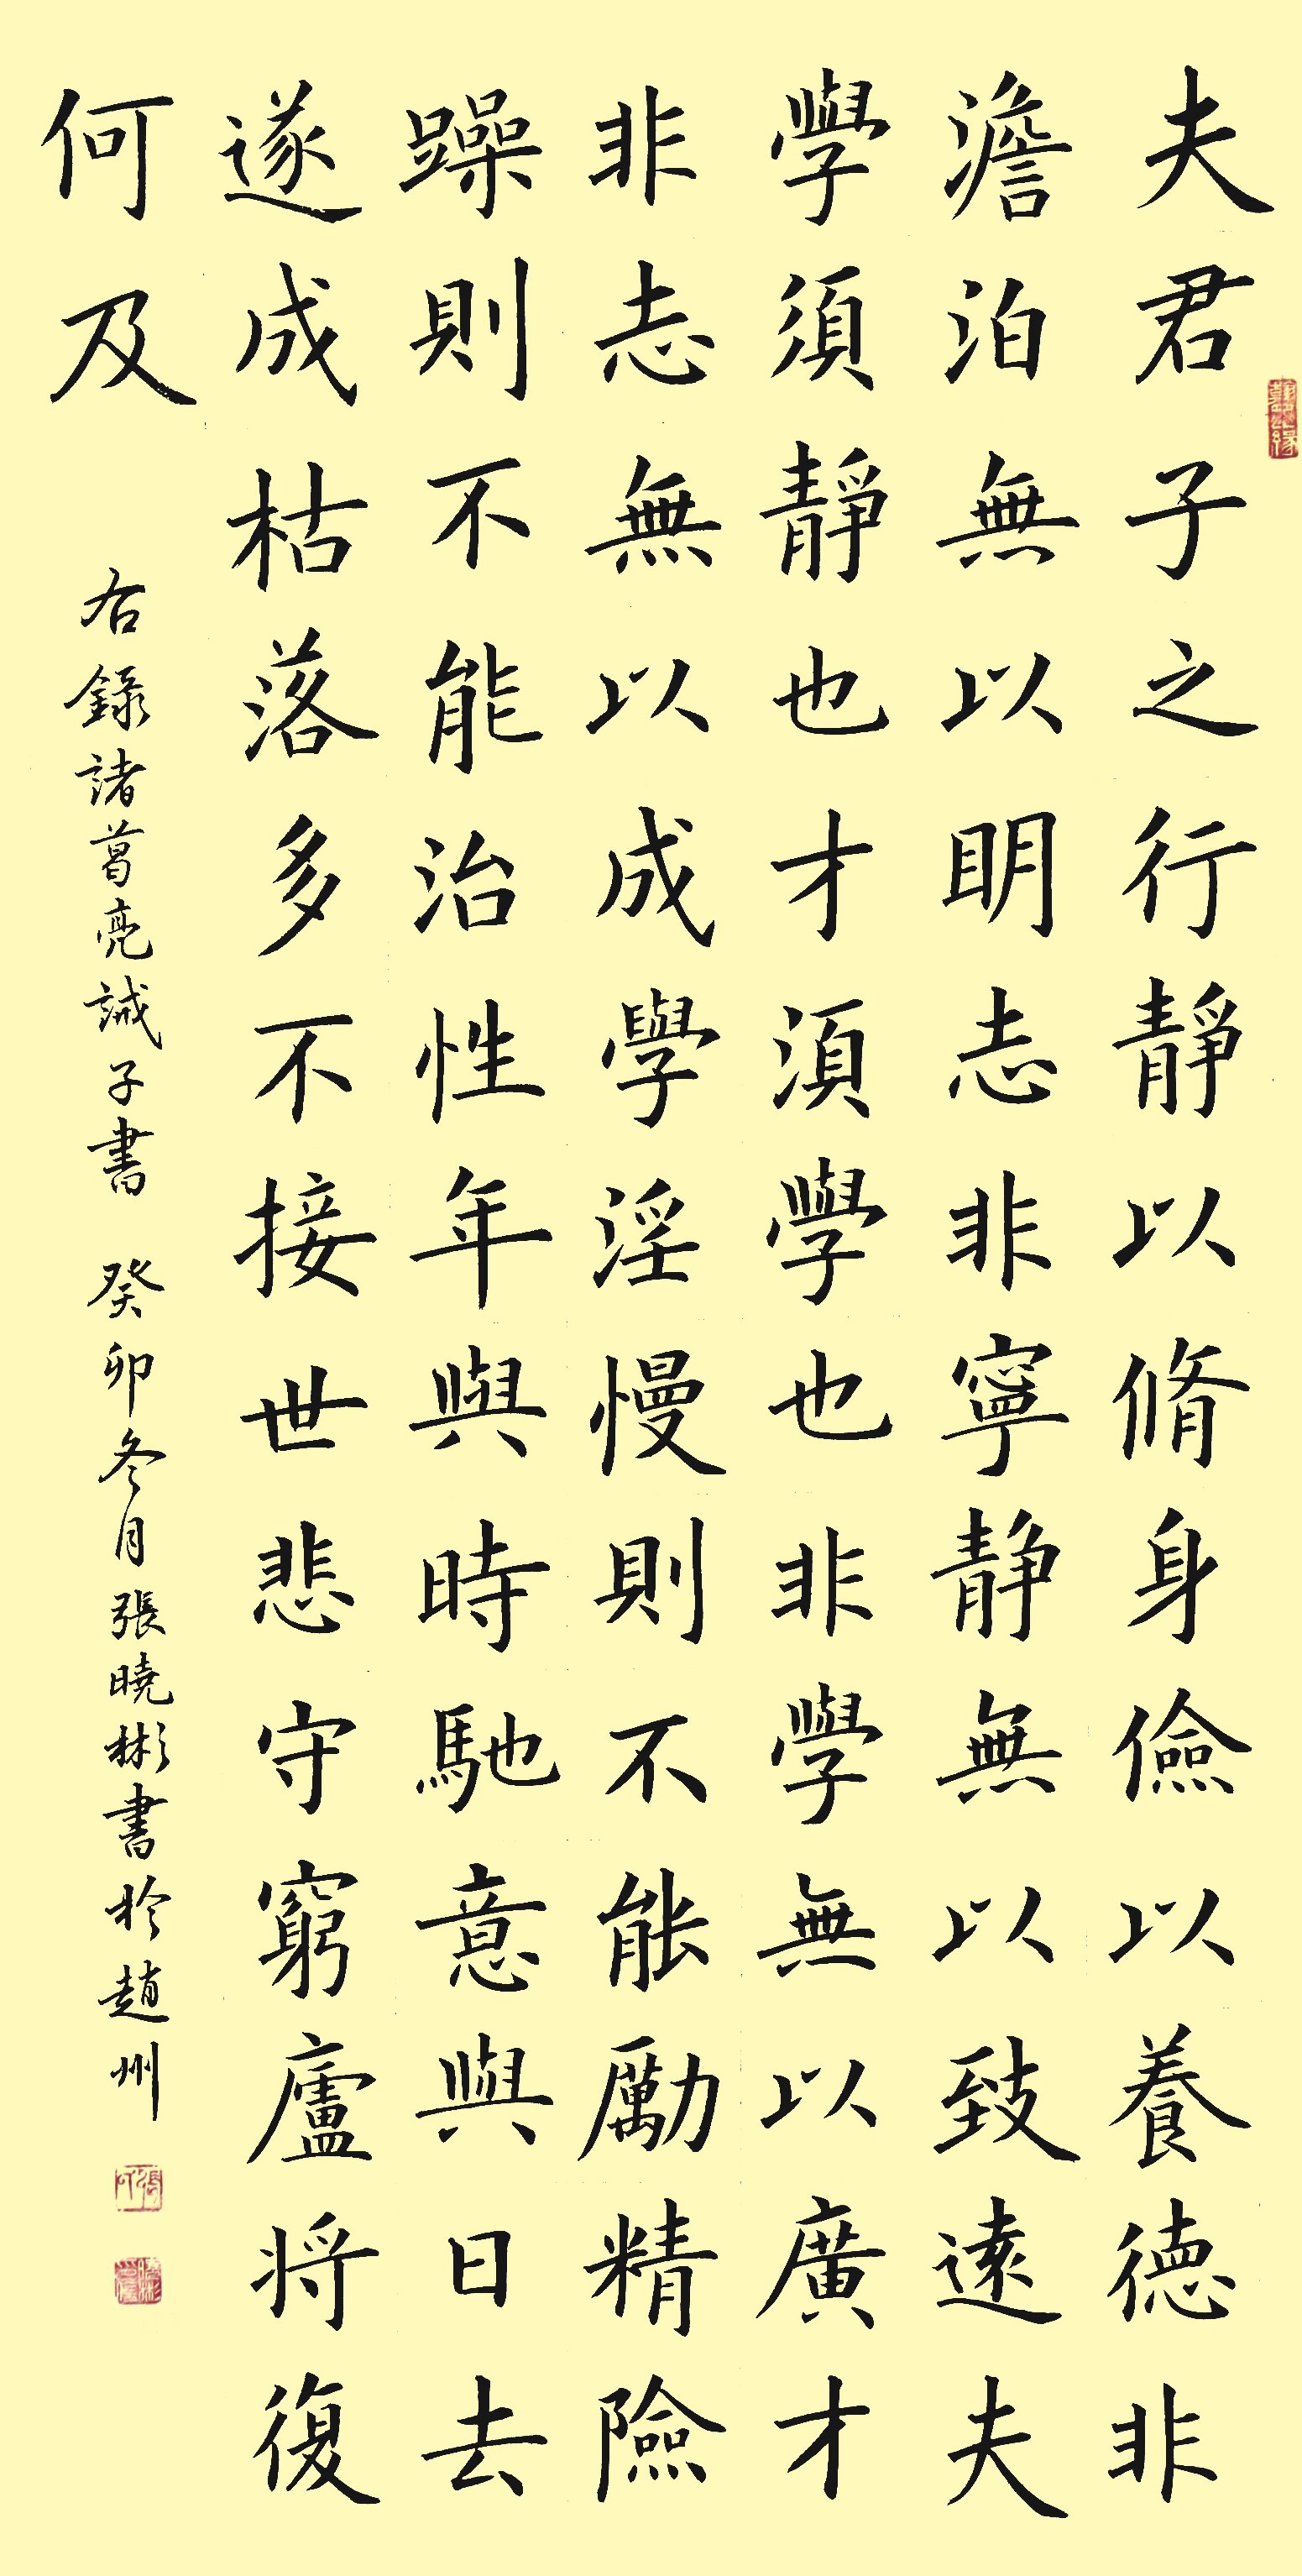 夫君子之行靜以脩身儉以養德非
澹泊無以眀志非寧静無以致遠夫
學須靜也才須學也非學無以廣才
非志無以成學淫慢則不能勵精險
躁則不能治性年與時馳意與日去
遂成枯落多不接世悲守窮廬将復
何及
右錄諸葛亮誡子書 癸卯冬月張曉彬書於趙州